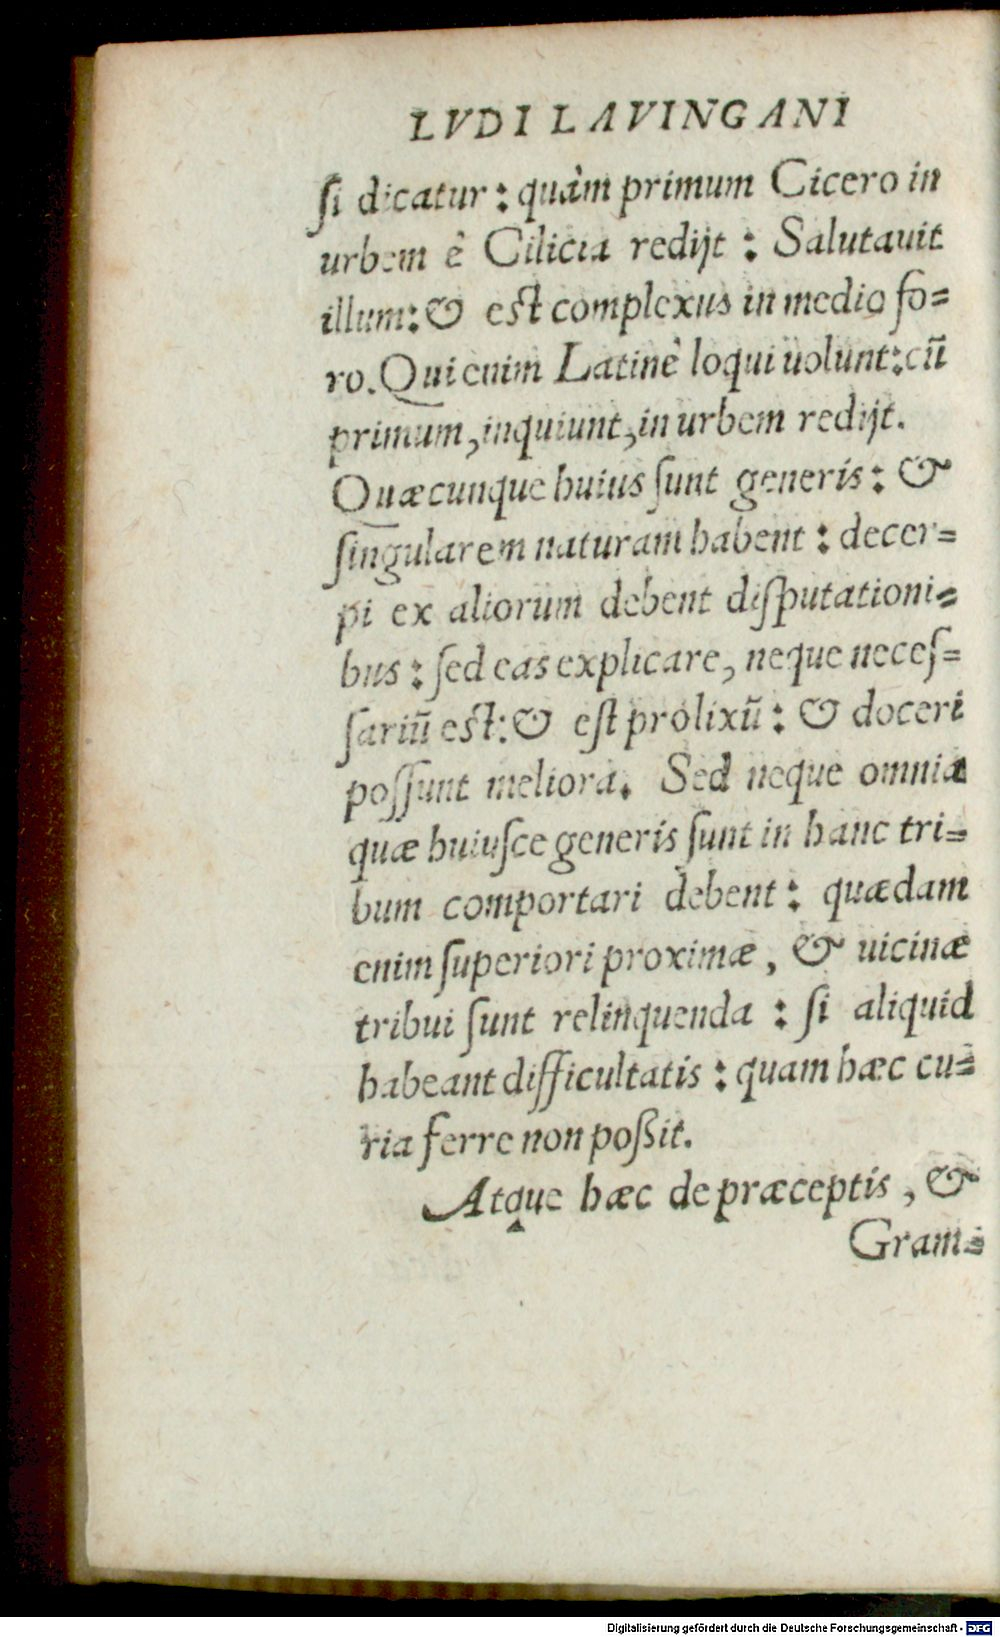 LVDI LAVINGANI
ſi dicatur: quàm primum Cicero in
urbem è Cilicia redijt: Salutauit
illum: & est complexus in medio fo=
ro. Qui enim Latinè loqui uolunt: cū
primum, inquiunt, in urbem redijt.
Quæcunque huius ſunt generis: &
ſingularem naturam habent: decer=
pi ex aliorum debent diſputationi=
bus: ſed eas explicare, neque neceſ=
ſariū est: & eſt prolixū: & doceri
poſſunt meliora. Sed neque omnia
quæ huiuſce generis ſunt in hanc tri=
bum comportari debent: quædam
enim ſuperiori proximæ, & uicinæ
tribui ſunt relinquenda: ſi aliquid
habeant difficultatis: quam hæc cu=
ria ferre non poßit.
Atque hæc de præceptis, &
Gram=
Digitalisierung gefördert durch die Deutsche Forschungsgemeinschaft - DFG